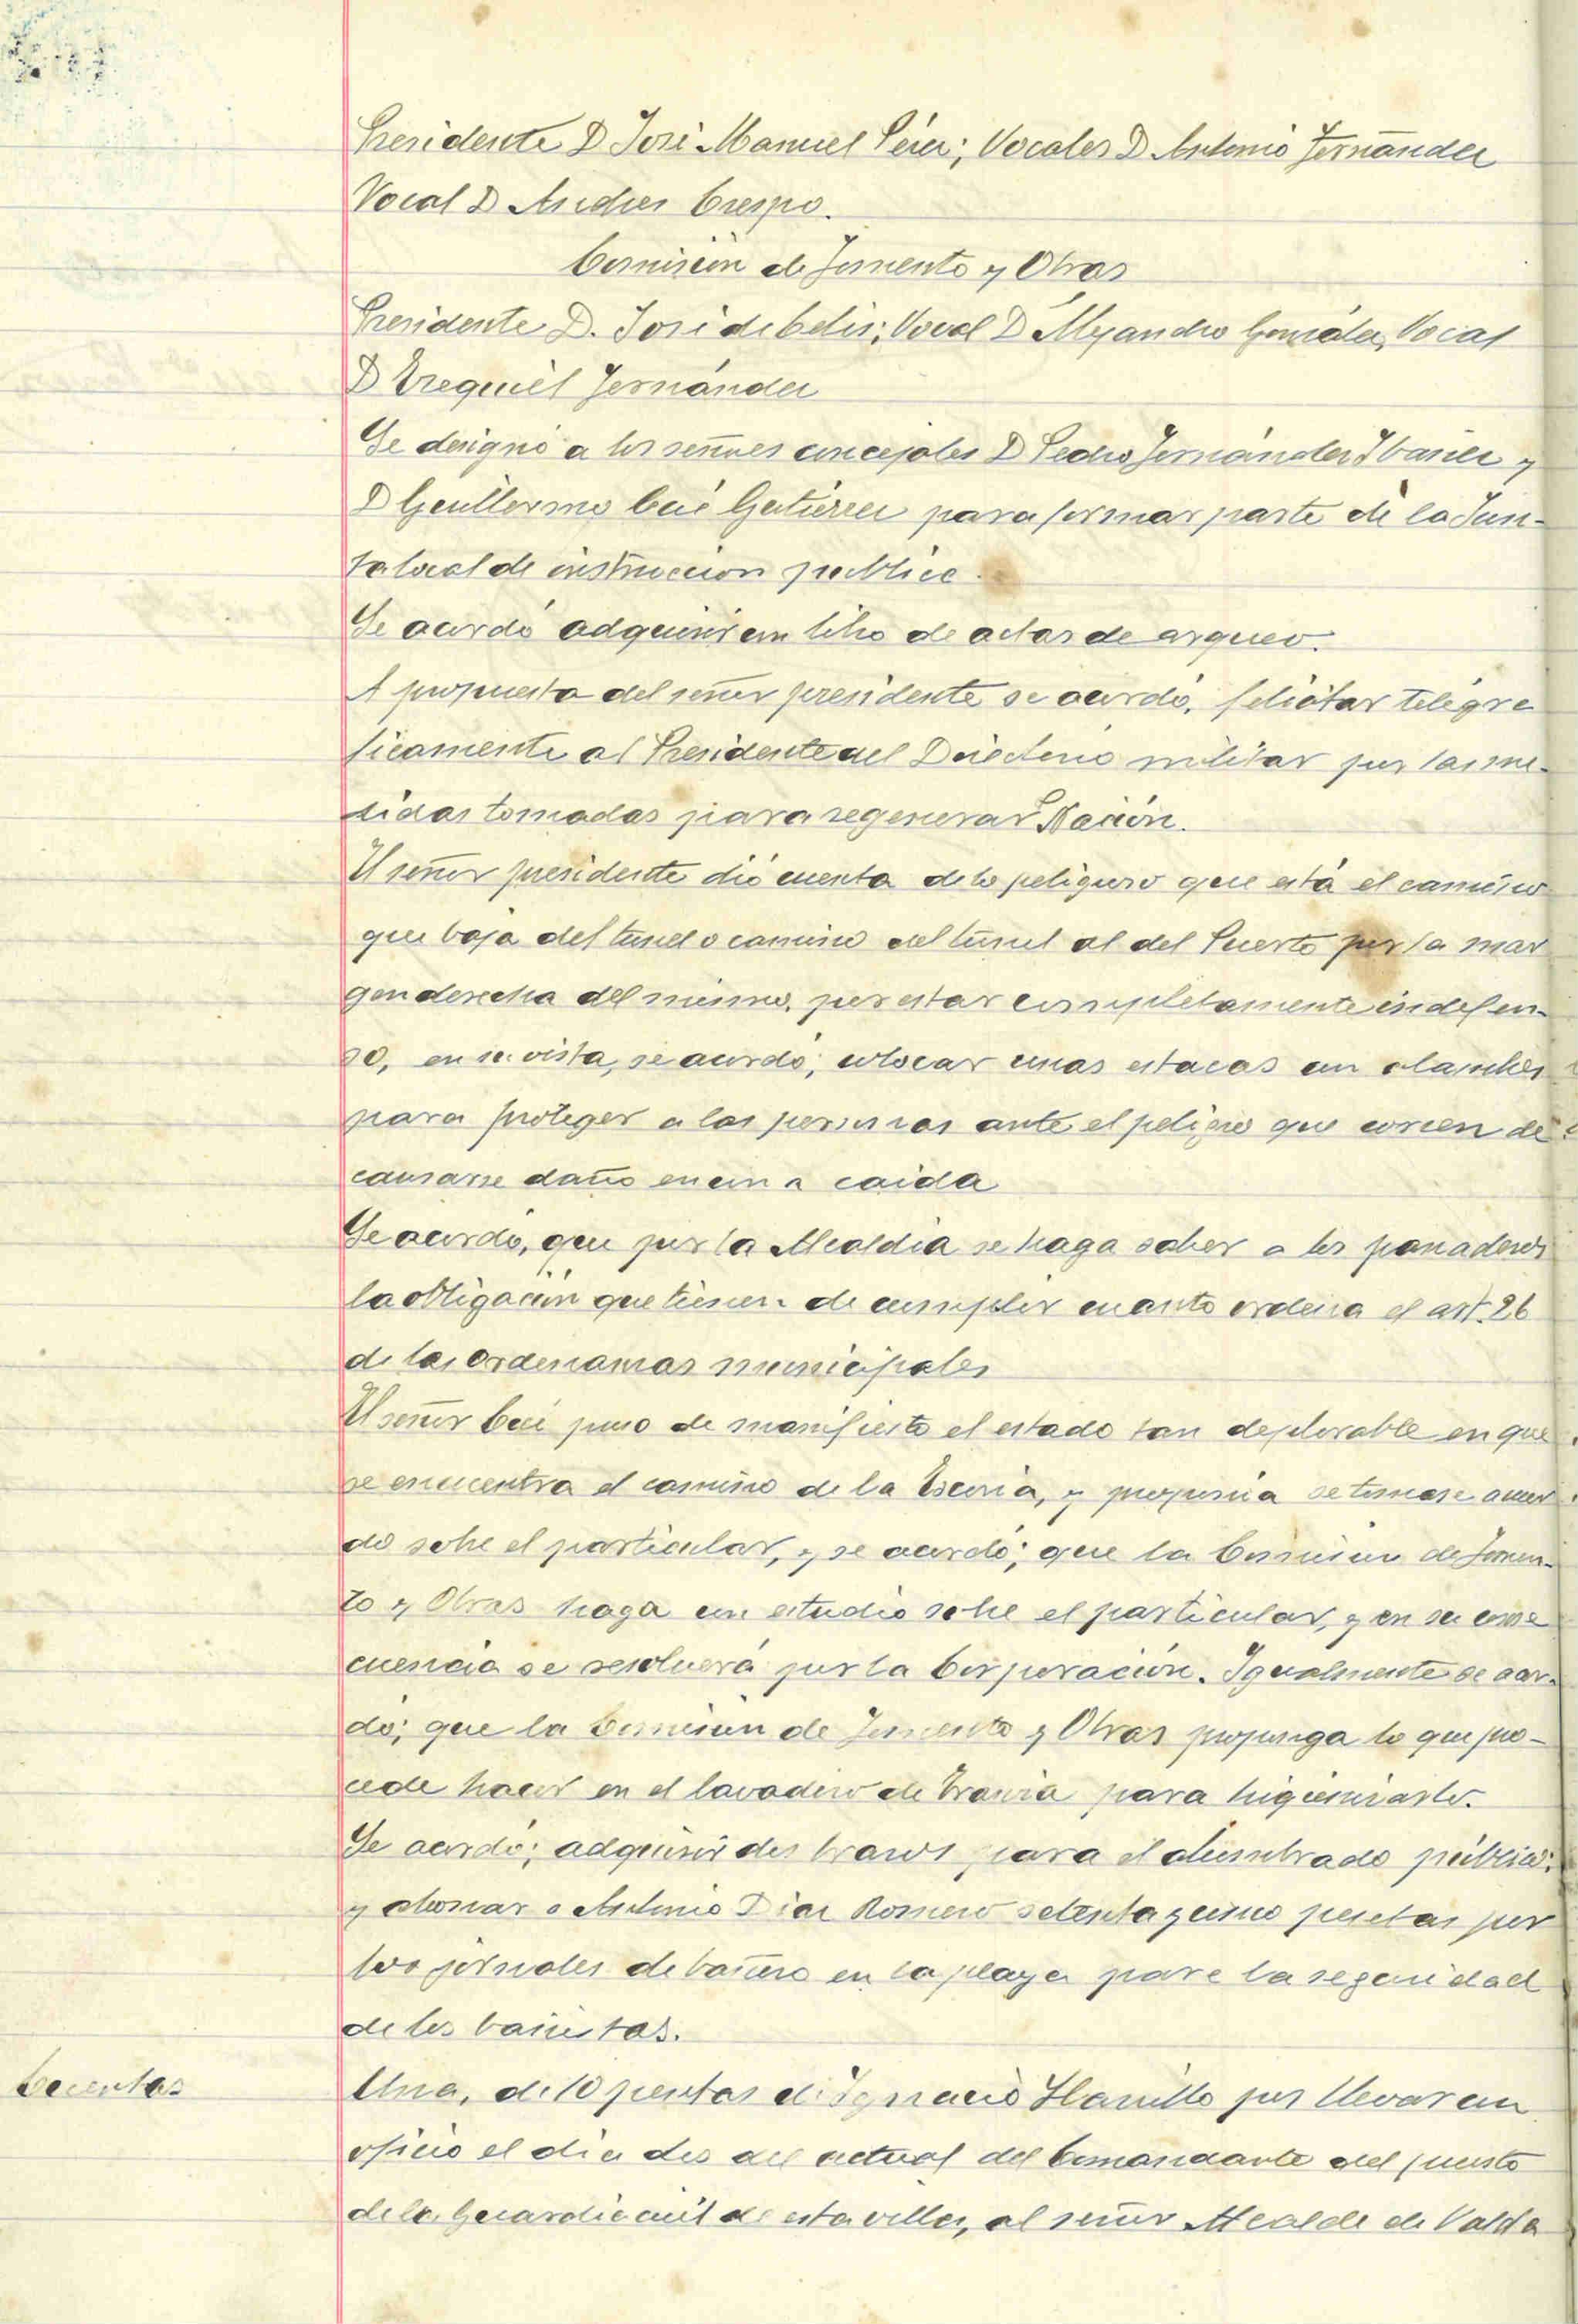 Presidente D José Manuel Pérez; Vocales D Antonio Fernández
Vocal D Andres Crespo.
Comisión de Fomento y Obras
Presidente D. José de Celis; Vocal D Alejandro González, Vocal
D Ezequiel Fernández
Se designó a los señores concejales D Pedro Fernández Ibañez y
D Guillermo Cué Gutiérrez para formar parte de la Jun-
ta local de instruccion publica.
Se acordó adquirir un libro de actas de arqueo.
A propuesta del señor presidente se acordó, felicitar telegra
ficamente al Presidente del Directorio militar por las me-
didas tomadas para regenerar Nación.
El señor presidente dió cuenta de lo peligroso que está el camino
que baja del tunel o camino del túnel al del Puerto por la mar
gen derecha del mismo, por estar completamente indefen-
so, en su vista, se acordó; colocar unas estacas con alambres
para proteger a las personas ante el peligro que corren de
causarse daño en una caida
Se acordó, que por la Alcaldia se haga saber a los panaderos
la obligación que tienen de cumplir cuanto ordena el art. 26
de las ordenanzas municipales
El señor Cué puso de manifiesto el estado tan deplorable en que
se encuentra el camino de la Escoria, y proponia se tomase acuer
do sobre el particular, y se acordó; que la Comision de Fomen-
to y Obras haga un estudio sobre el particular, y en su conse
cuencia se resolverá por la Corporación. Igualmente se acor-
dó; que la Comisión de Fomento y Obras proponga lo que pro-
cede hacer en el lavadero de para higienizarlo.
Se acordó; adquirir dos brazos para el alumbrado público;
y abonar a Antonio Diaz Romero setenta y cinco pesetas por
los jornales de bañero en la playa para la seguridad
de los bañistas.
Cuentas
Una, de 10 pesetas de Ignacio por llevar un
oficio el dia dos del actual del Comandante del puesto
de la Guardia civil de esta villa, al señor Alcalde de Valda